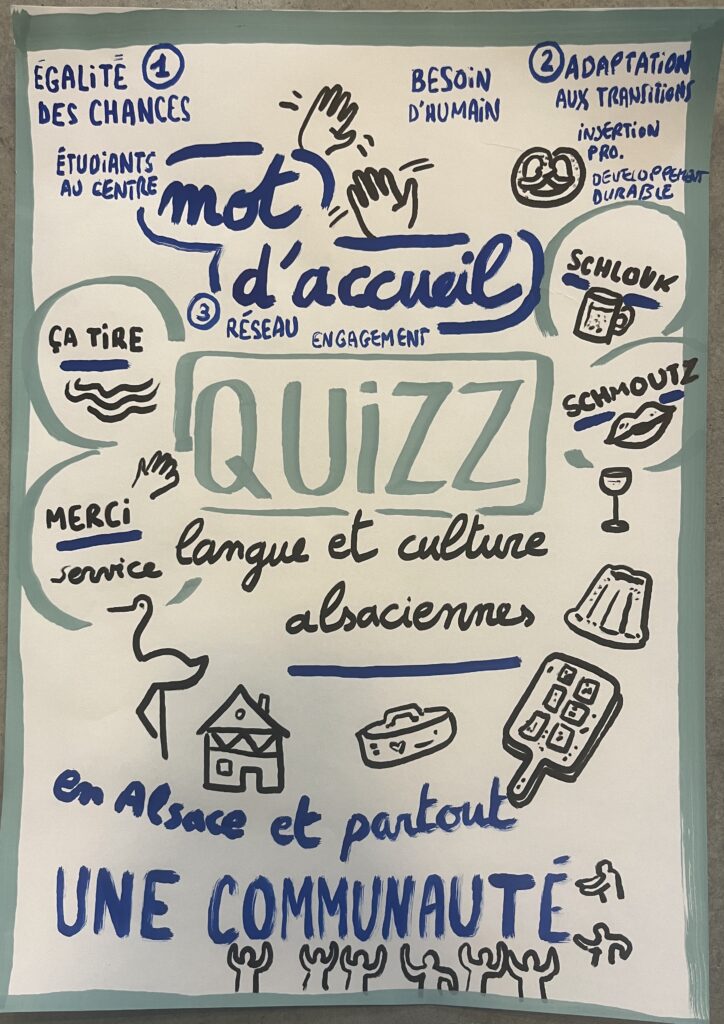 ÉGALITÉ 1
DES CHANCES
BESOIN
D'HUMAIN
2 ADAPTATION
AUX TRANSITIONS
INSERTION
PRO.
DEVELOPPEMENT
DURABLE
ÉTUDIANTS
AU CENTRE
mot
d'accueil
3 RÉSEAU ENGAGEMENT
ÇA TIRE
SCHLOUK
QUiZZ
SCHMOUTZ
MERCi
service
langue et culture
alsaciennes
en Alsace et partout
UNE COMMUNAUTÉ